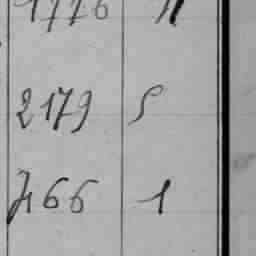 1776 11
2179 5
466 1